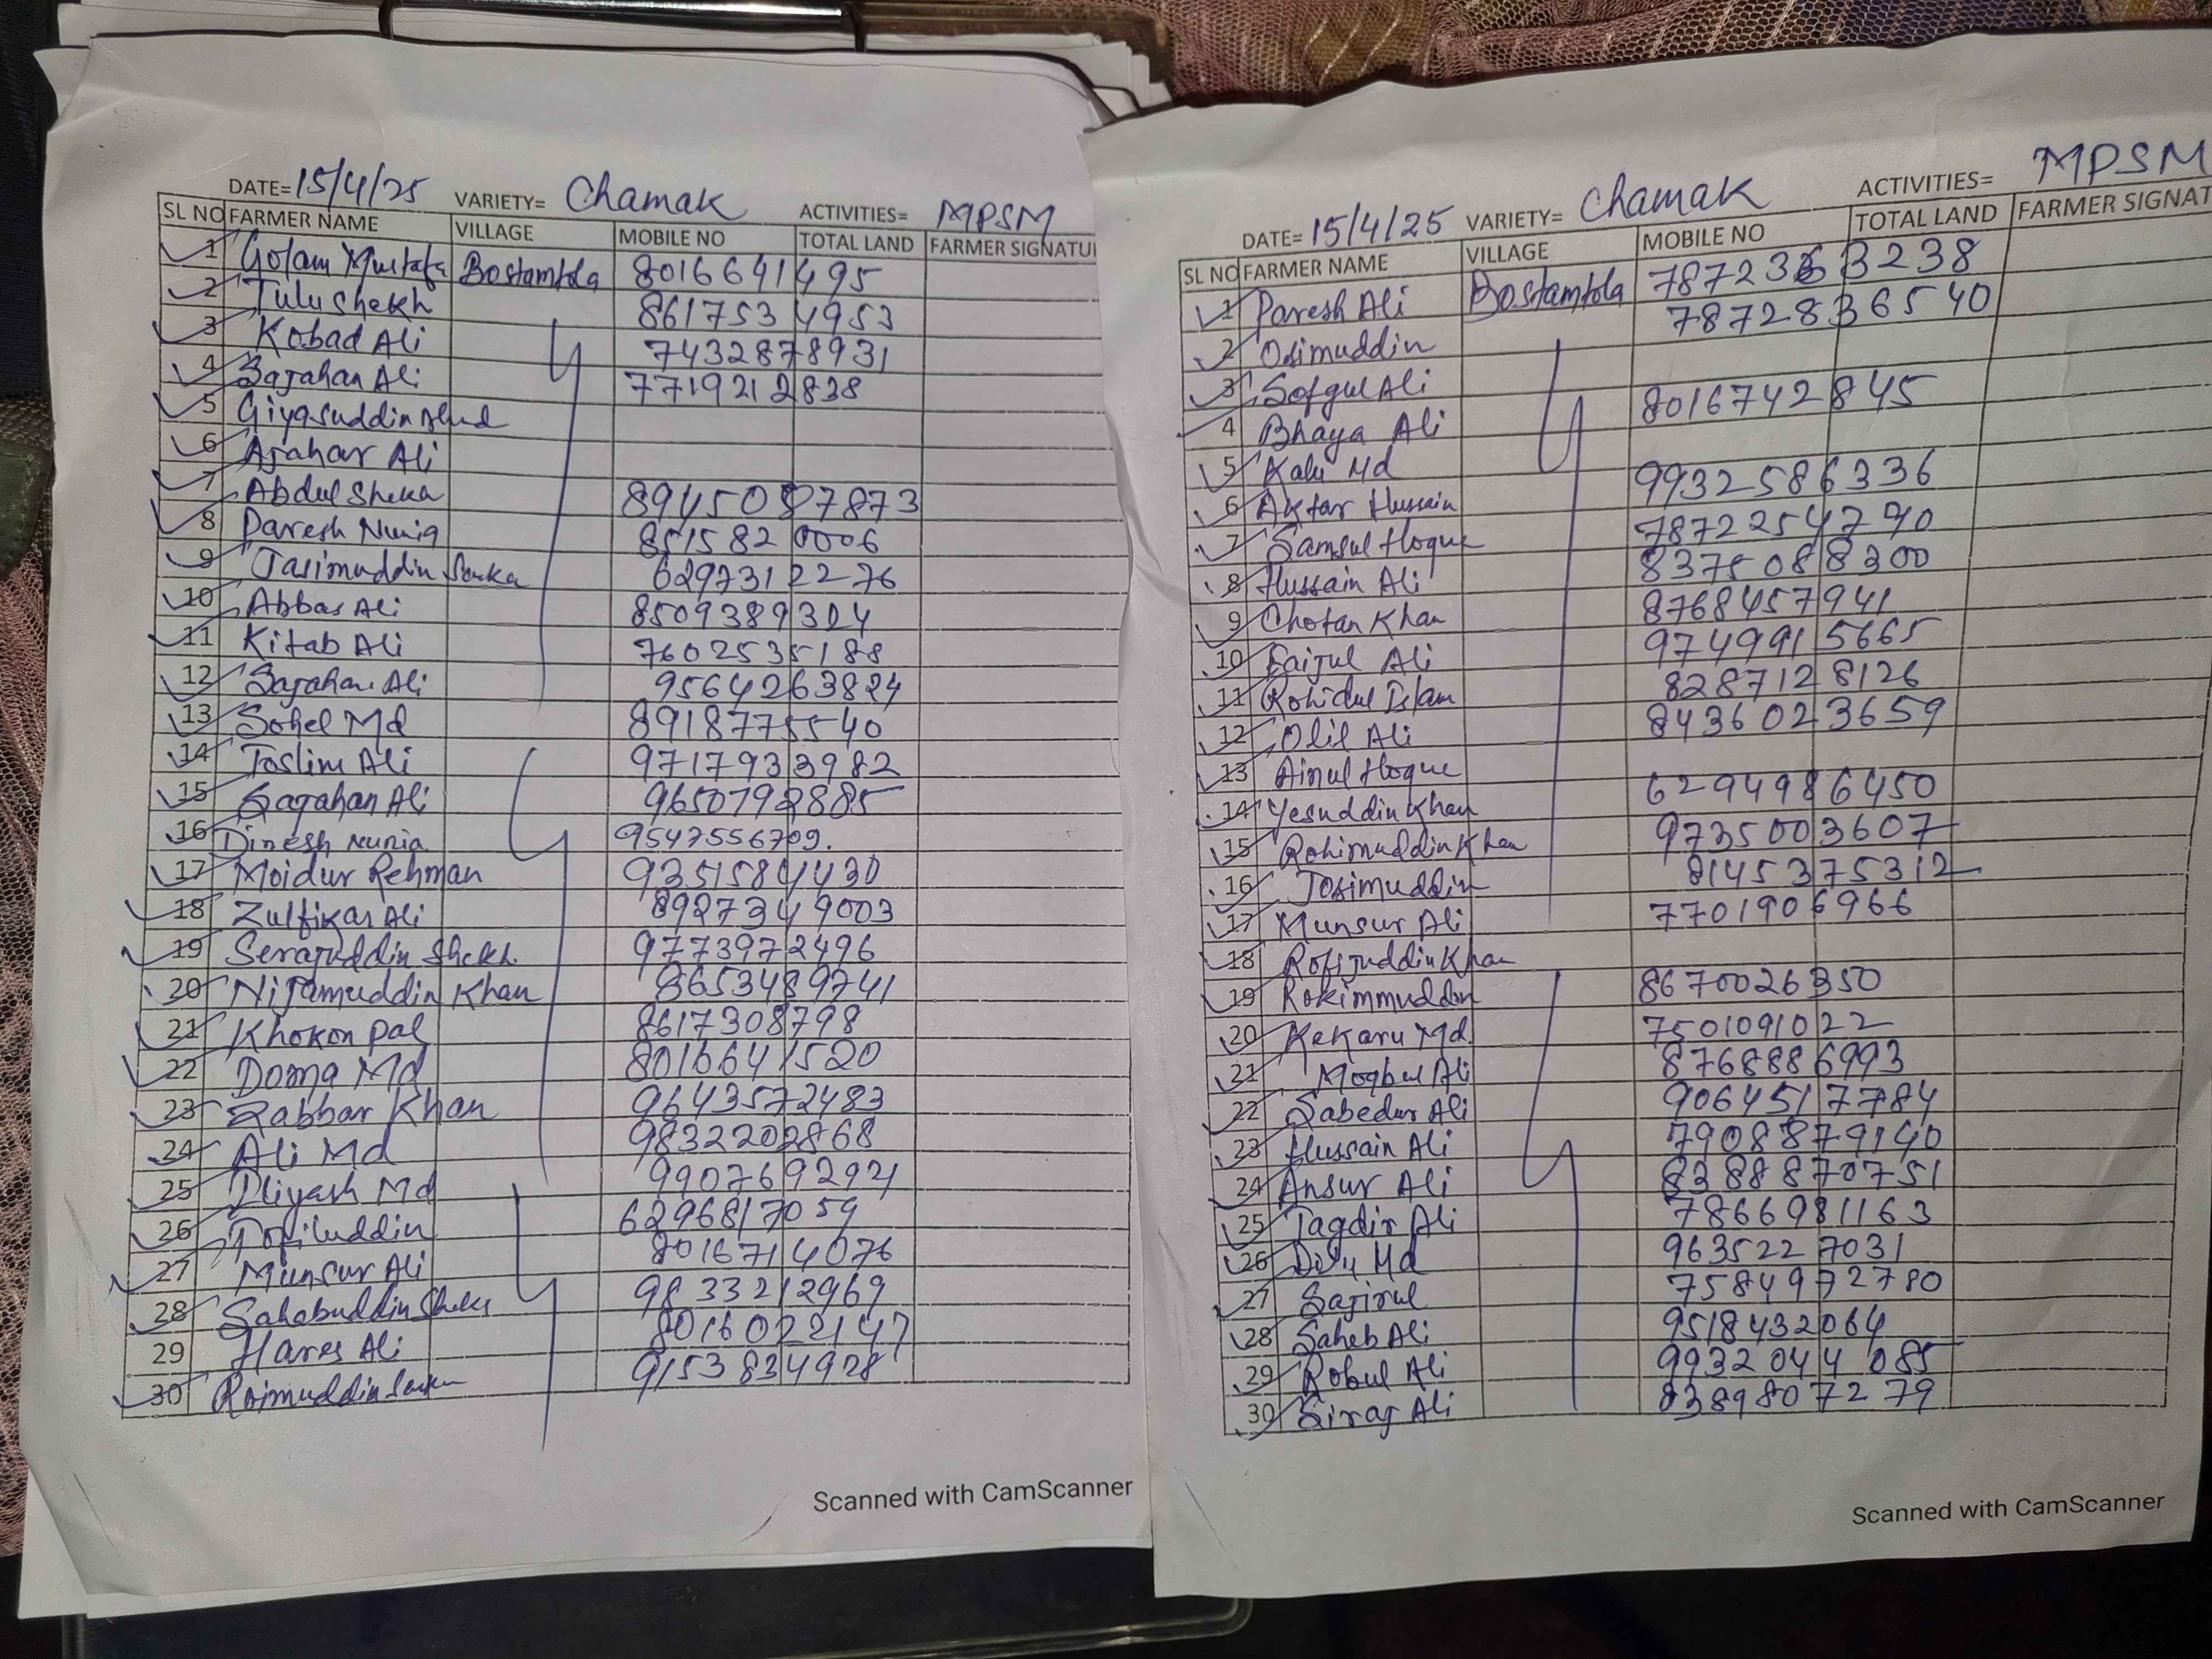 DATE= 15/4/25 VARIETY= Chamak ACTIVITIES= MPSM
SL NO FARMER NAME VILLAGE MOBILE NO TOTAL LAND FARMER SIGNATU
1 Golam Mustafa Bostamtola 8016641495
2 Tulu Shekh 8617534953
3 Kobad Ali 7432878931
4 Sajahan Ali 7719212838
5 Giyasuddin
6 Ajahar Ali
7 Abdul Sheka 8945087873
8 Paresh Nunia 8515820006
9 Jasimuddin Sarka 6297312276
10 Abbas Ali 8509389324
11 Kitab Ali 7602535188
12 Sajahan Ali 9564263824
13 Sohel Md 8918775540
14 Toslim Ali 9717933982
15 Sajahan Ali 9650792885
16 Dinesh Nunia 9547556709.
17 Moidur Rehman 9351584430
18 Zulfikar Ali 8927349003
19 Serajuddin Shekh. 9773972496
20 Nijamuddin Khan 8653489741
21 Khokon pal 8617308798
22 Doma Md 8016641520
23 Zabbar Khan 9643572483
24 Ali Md 9832202868
25 Iliyash Md 9907692921
26 Tofiluddin 6296817059
27 Munsur Ali 8016714076
28 Sahabuddin Sheks 9833212969
29 Hares Ali 8016022147
30 Roimuddin Sarkar 9153834928
Scanned with CamScanner
DATE= 15/4/25 VARIETY= Chamak ACTIVITIES= MPSM
SL NO FARMER NAME VILLAGE MOBILE NO TOTAL LAND FARMER SIGNAT
1 Paresh Ali Bostamtola
2 Osimuddin 7872836540
3 Sofgul Ali
4 Bhaya Ali 8016742845
5 Kalu Md
6 Aktar Hussain 9932586336
7 Samsul Hoque 7872254790
8 Hussain Ali 8375088300
9 Chotan Khan 8768457941
10 Saijul Ali 9749915665
11 Rohidul Islam 8287128126
12 Olil Ali 8436023659
13 Ainul Hoque
14 Yesuddin Khan 6294986450
15 Rohimuddin Khan 9735003607
16 Josimuddin 8145375312
17 Munsur Ali 7701906966
18 Rofijuddin Khan
19 Rokimmuddin 8670026350
20 Kekaru Md. 7501091022
21 Moqbul Ali 8768886993
22 Sabedur Ali 9064517784
23 Hussain Ali 7908879140
24 Ansur Ali 8388870751
25 Tagdir Ali 7866981163
26 Md 9635227031
27 Sajirul 7584972780
28 Saheb Ali 9518432064
29 Robul Ali 9932044085
30 Siraj Ali 8389807279
Scanned with CamScanner